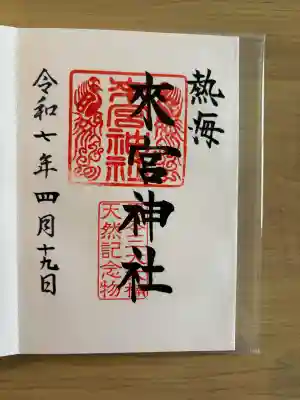 熱海
來宮神社
令和七年四月十九日
來宮神社
天然記念物